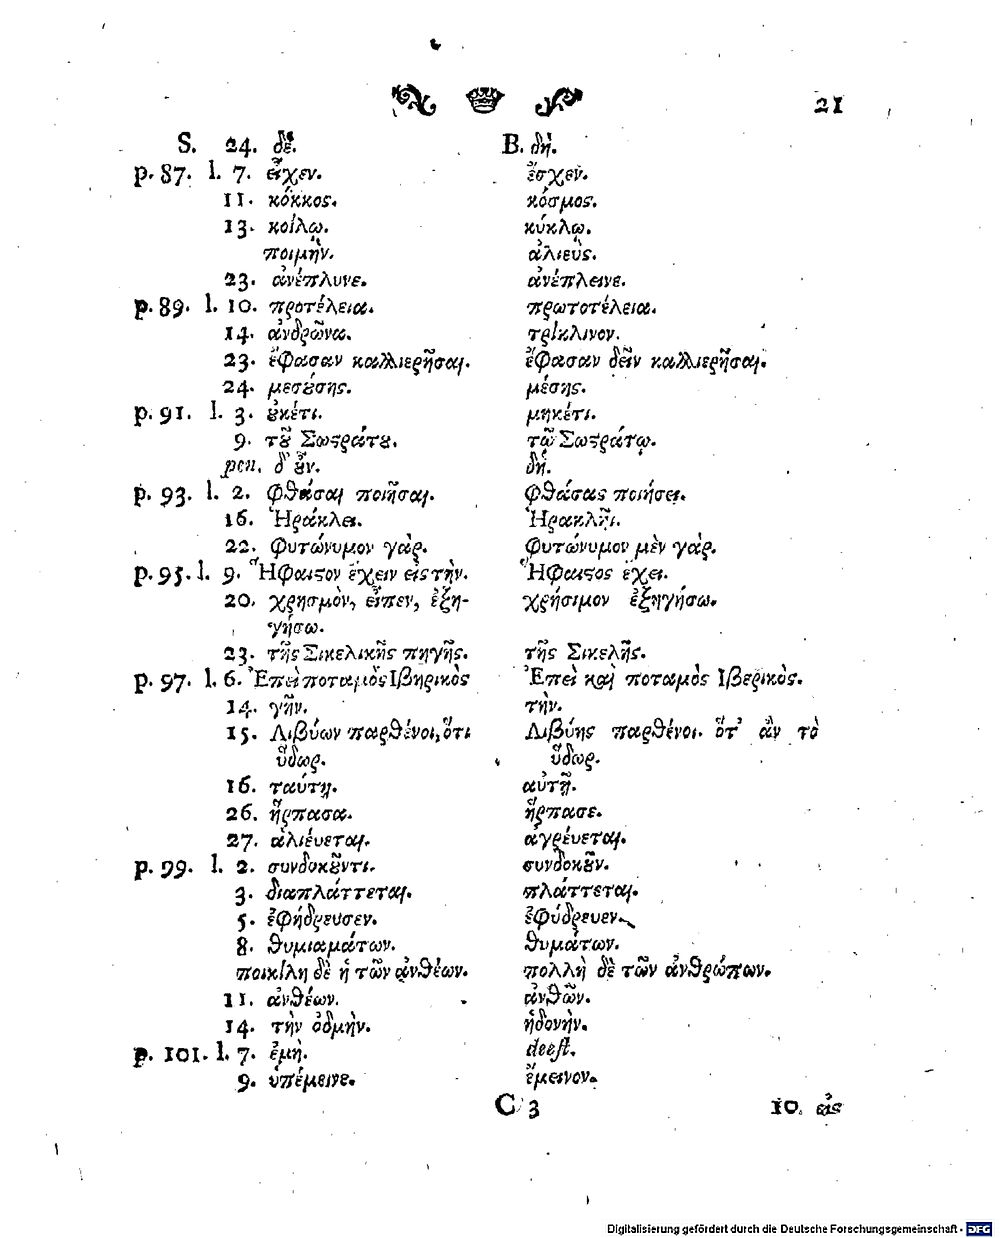 21
S. 24. δέ. B. δή.
p. 87. l. 7. εἶχεν. ἔσχεν.
11. κόκκος. κόσμος.
13. κοίλῳ. κύκλῳ.
ποιμήν. ἁλιεύς.
23. ἀνέπλυνε. ἀνέπλεινε.
p. 89. l. 10. προτέλεια. πρωτοτέλεια.
14. ἀνδρῶνα. τρίκλινον.
23. ἔφασαν καλλιερῆσαι. ἔφασαν δεῖν καλλιερῆσαι.
24. μεσούσης. μέσης.
p. 91. l. 3. οὐκέτι. μηκέτι.
9. τοῦ Σωστράτου. τῷ Σωστράτῳ.
pen. δ' οὖν. δή.
p. 93. l. 2. φθάσαι ποιῆσαι. φθάσας ποιήσει.
16. Ἡράκλει. Ἡρακλῆι.
22. φυτώνυμον γάρ. φυτώνυμον μὲν γάρ.
p. 95. l. 9. Ἥφαιστον ἔχειν εἰς τὴν. Ἥφαιστος ἔχει.
20. χρησμὸν, εἶπεν, ἐξη- χρήσιμον ἐξηγήσω.
γήσω.
23. τῆς Σικελικῆς πηγῆς. τῆς Σικελῆς.
p. 97. l. 6. Ἐπεὶ ποταμὸς Ιβηρικὸς Ἐπεὶ καὶ ποταμὸς Ιβερικὸς.
14. γῆν. τὴν.
15. Λιβύων παρθένοι, ὅτι Λιβύης παρθένοι. ὅτ' ἂν τὸ
ὕδωρ. ὕδωρ.
16. ταύτῃ. αὐτῇ.
26. ἥρπασα. ἥρπασε.
27. ἁλιεύεται. ἀγρεύεται.
p. 99. l. 2. συνδοκοῦντι. συνδοκοῦν.
3. διαπλάττεται. πλάττεται.
5. ἐφήδρευσεν. ἐφύδρευεν.
8. θυμιαμάτων. θυμάτων.
ποικίλη δὲ ἡ τῶν ἀνθέων. πολλὴ δὲ τῶν ἀνθρώπων.
11. ἀνθέων. ἀνθῶν.
14. τὴν ὀδμὴν. ἡδονήν.
p. 101. l. 7. ἐμὴ. deest.
9. ὑπέμεινε. ἔμεινον.
C 3 10. εἰς
Digitalisierung gefördert durch die Deutsche Forschungsgemeinschaft - DFG